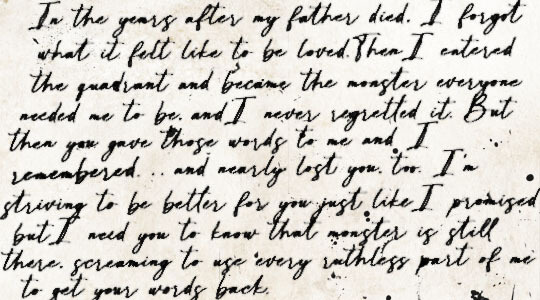 In the years after my father died. I forgot
what it felt like to be loved. Then I entered
the quadrant and became the monster everyone
needed me to be. and I never regretted it. But
then you gave those words to me and I
remembered... and nearly lost you. too. I'm
striving to be better for you just like I promised
but I need you to know that monster is still
there. screaming to use every ruthless part of me
to get your words back.